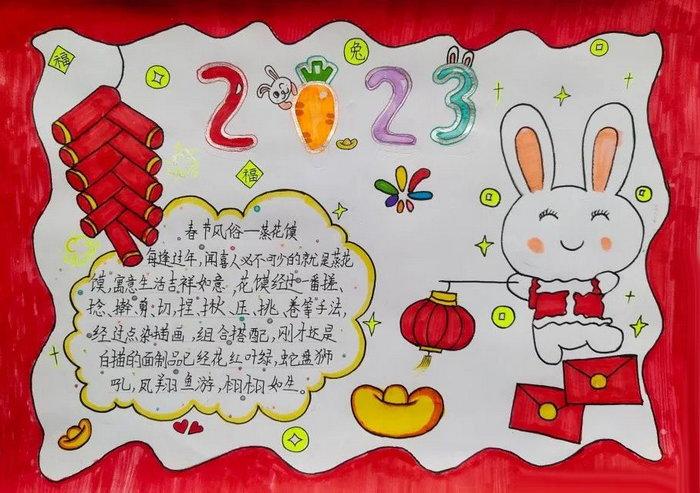 福
兔
2023
福
春节风俗—蒸花馍
每逢过年,闻喜人必不可少的就是蒸花
馍,寓意生活吉祥如意,花馍经过一番搓、
捻、擀、剪、切、捏、揪、压、挑、卷等手法,
经过点染描画,组合搭配,刚才还是
白描的面制品已经花红叶绿,蛇盘狮
吼,凤翔鱼游,栩栩如生。